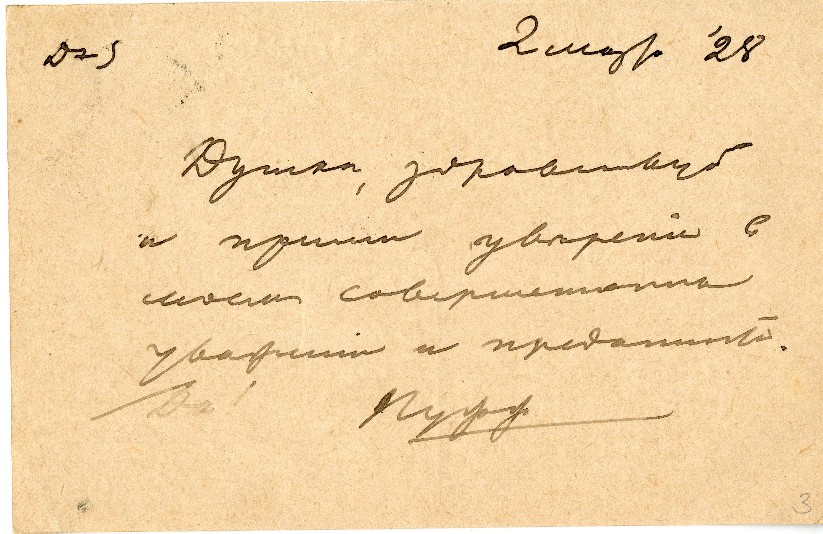 2 мар '28
Душка, здравствуй
и прими уверение в
моем совершенном
уважении и преданности.
Да! Пуфф
3